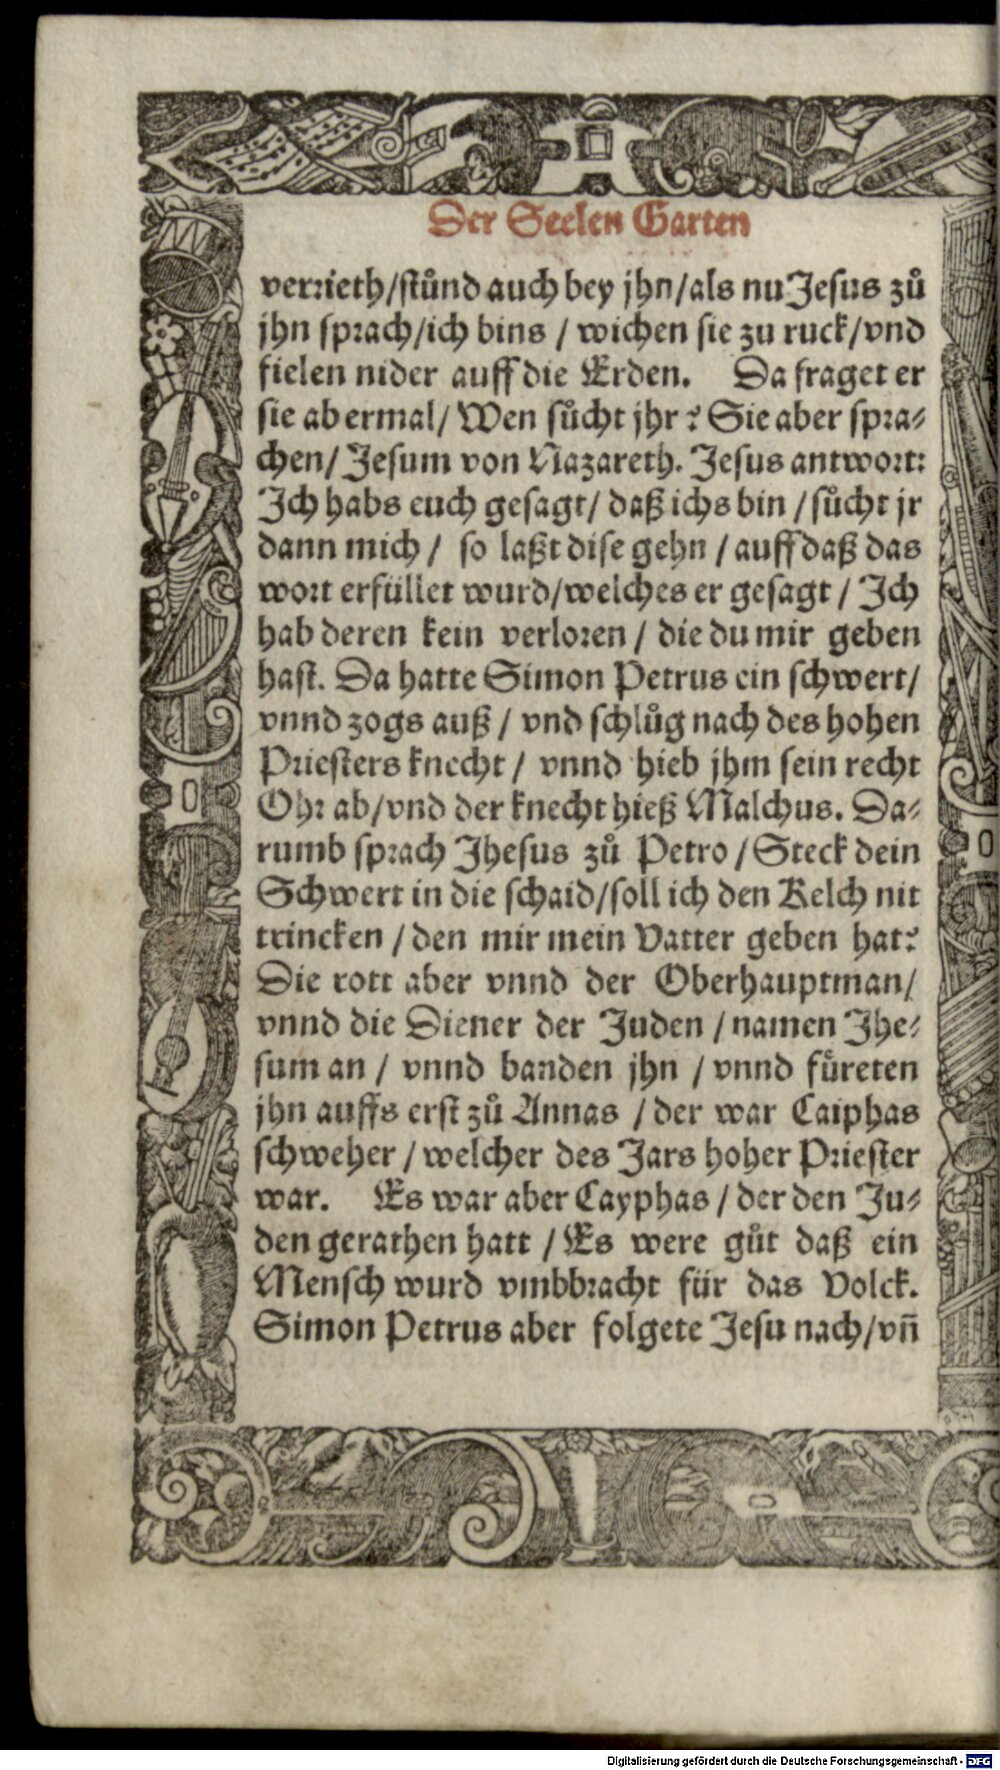 Der Seelen Garten
verrieth/stůnd auch bey jhn/als nu Jesus zů
jhn sprach/ich bins / wichen sie zu ruck/vnd
fielen nider auff die Erden. Da fraget er
sie abermal/ Wen sůcht jhr? Sie aber spra-
chen/ Jesum von Nazareth. Jesus antwort:
Ich habs euch gesagt/ daß ichs bin / sůcht jr
dann mich / so laßt dise gehn / auff daß das
wort erfüllet wurd/welches er gesagt / Ich
hab deren kein verloren / die du mir geben
hast. Da hatte Simon Petrus ein schwert/
vnnd zogs auß / vnd schlůg nach des hohen
Priesters knecht / vnnd hieb jhm sein recht
Ohr ab/vnd der knecht hieß Malchus. Da-
rumb sprach Jhesus zů Petro / Steck dein
Schwert in die schaid/soll ich den Kelch nit
trincken / den mir mein Vatter geben hat?
Die rott aber vnnd der Oberhauptman/
vnnd die Diener der Juden / namen Jhe-
sum an / vnnd banden jhn / vnnd fůreten
jhn auffs erst zů Annas / der war Caiphas
schweher / welcher des Jars hoher Priester
war. Es war aber Cayphas / der den Ju-
den gerathen hatt / Es were gůt daß ein
Mensch wurd vmbbracht für das Volck.
Simon Petrus aber folgete Jesu nach/vn̄
Digitalisierung gefördert durch die Deutsche Forschungsgemeinschaft - DFG